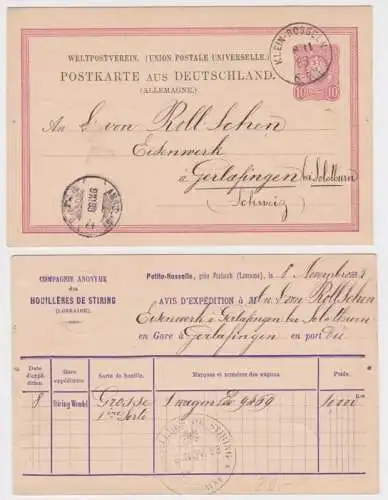 WELTPOSTVEREIN. (UNION POSTALE UNIVERSELLE.)
POSTKARTE AUS DEUTSCHLAND.
(ALLEMAGNE.)
KLEIN-ROSSELN
10 10
An L. von Roll Schen
Eisenwerk
à Gerlafingen bei Solothurn
(Schweiz)
COMPAGNIE ANONYME
des
HOUILLÈRES DE STIRING
(LORRAINE)
Petite-Rosselle, près Forbach (Lorraine), le 8 Novembre
AVIS D'EXPÉDITION à M L. von Roll Schen
Eisenwerk à Gerlafingen bei Solothurn
en Gare à Gerlafingen en port Dû
Date d'expédition. Gare expéditrice. Sorte de houille. Marques et numéros des wagons Poids.
8 Stiring Wendel Grosse 1 wagon 9459 10,000
1ère Sorte
DE STIRING